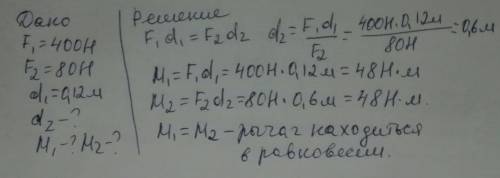 Дано
F₁=400Н
F₂=80Н
d₁=0,12м
d₂-?
M₁-? M₂-?
Решение
F₁d₁=F₂d₂ d₂=F₁d₁/F₂=400Н·0,12м/80Н=0,6м
M₁=F₁d₁=400Н·0,12м=48Н·м
M₂=F₂d₂=80Н·0,6м=48Н·м.
M₁=M₂-рычаг находиться
в равновесии.